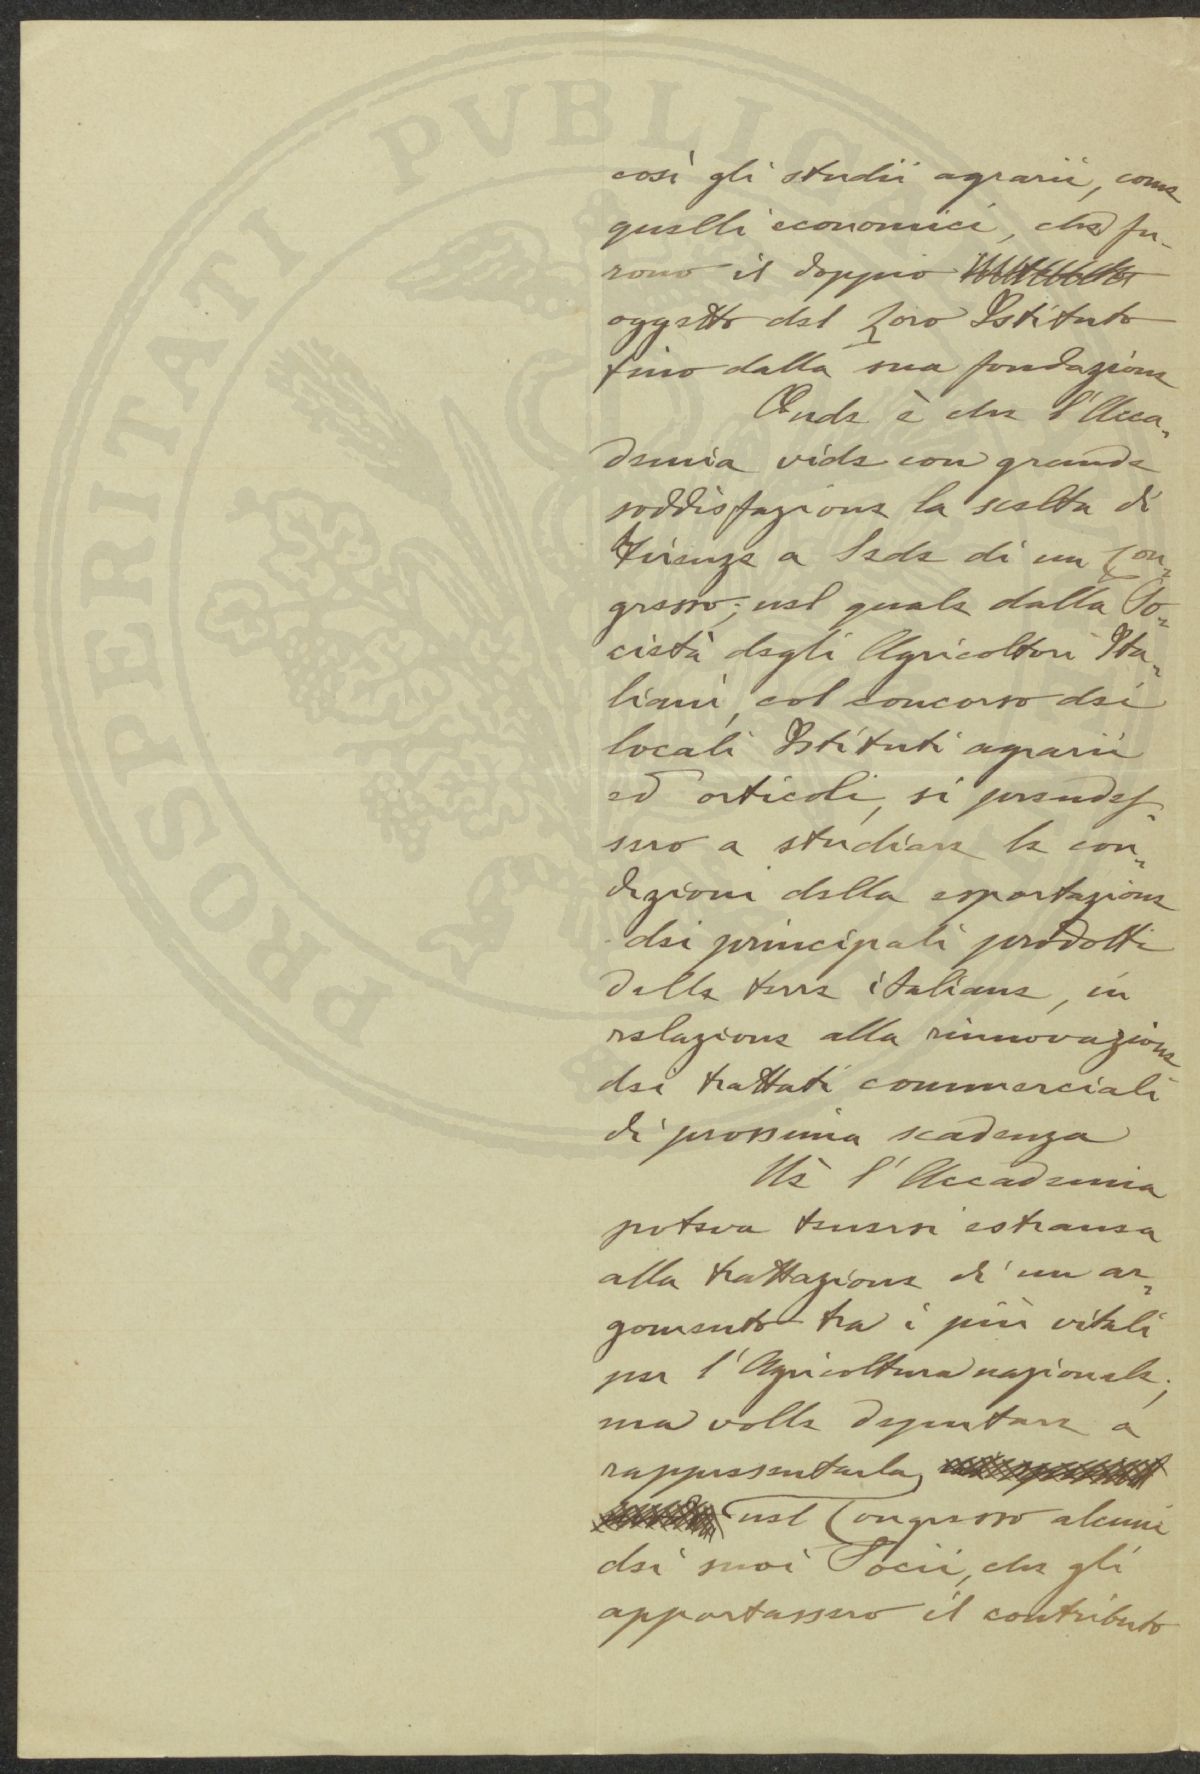 PROSPERITATI PVBLICA
così gli studii agrarii, come
quelli economici, che fu-
rono il doppio
oggetto del Loro Istituto
fino dalla sua fondazione
Onde è che l'Acca-
demia vide con grande
soddisfazione la scelta di
Firenze a Sede di un Con-
gresso; nel quale dalla So-
cietà degli Agricoltori Ita-
liani, col concorso dei
locali Istituti agrarii
ed orticoli, si prendes-
sero a studiare le con-
dizioni della esportazione
dei principali prodotti
delle terre italiane, in
relazione alla rinnovazione
dei trattati commerciali
di prossima scadenza
Nè l'Accademia
poteva tenersi estranea
alla trattazione di un ar-
gomento tra i più vitali
per l'Agricoltura nazionale;
ma volle deputare a
rappresentarla,
nel Congresso alcuni
dei suoi Socii, che gli
apportassero il contributo